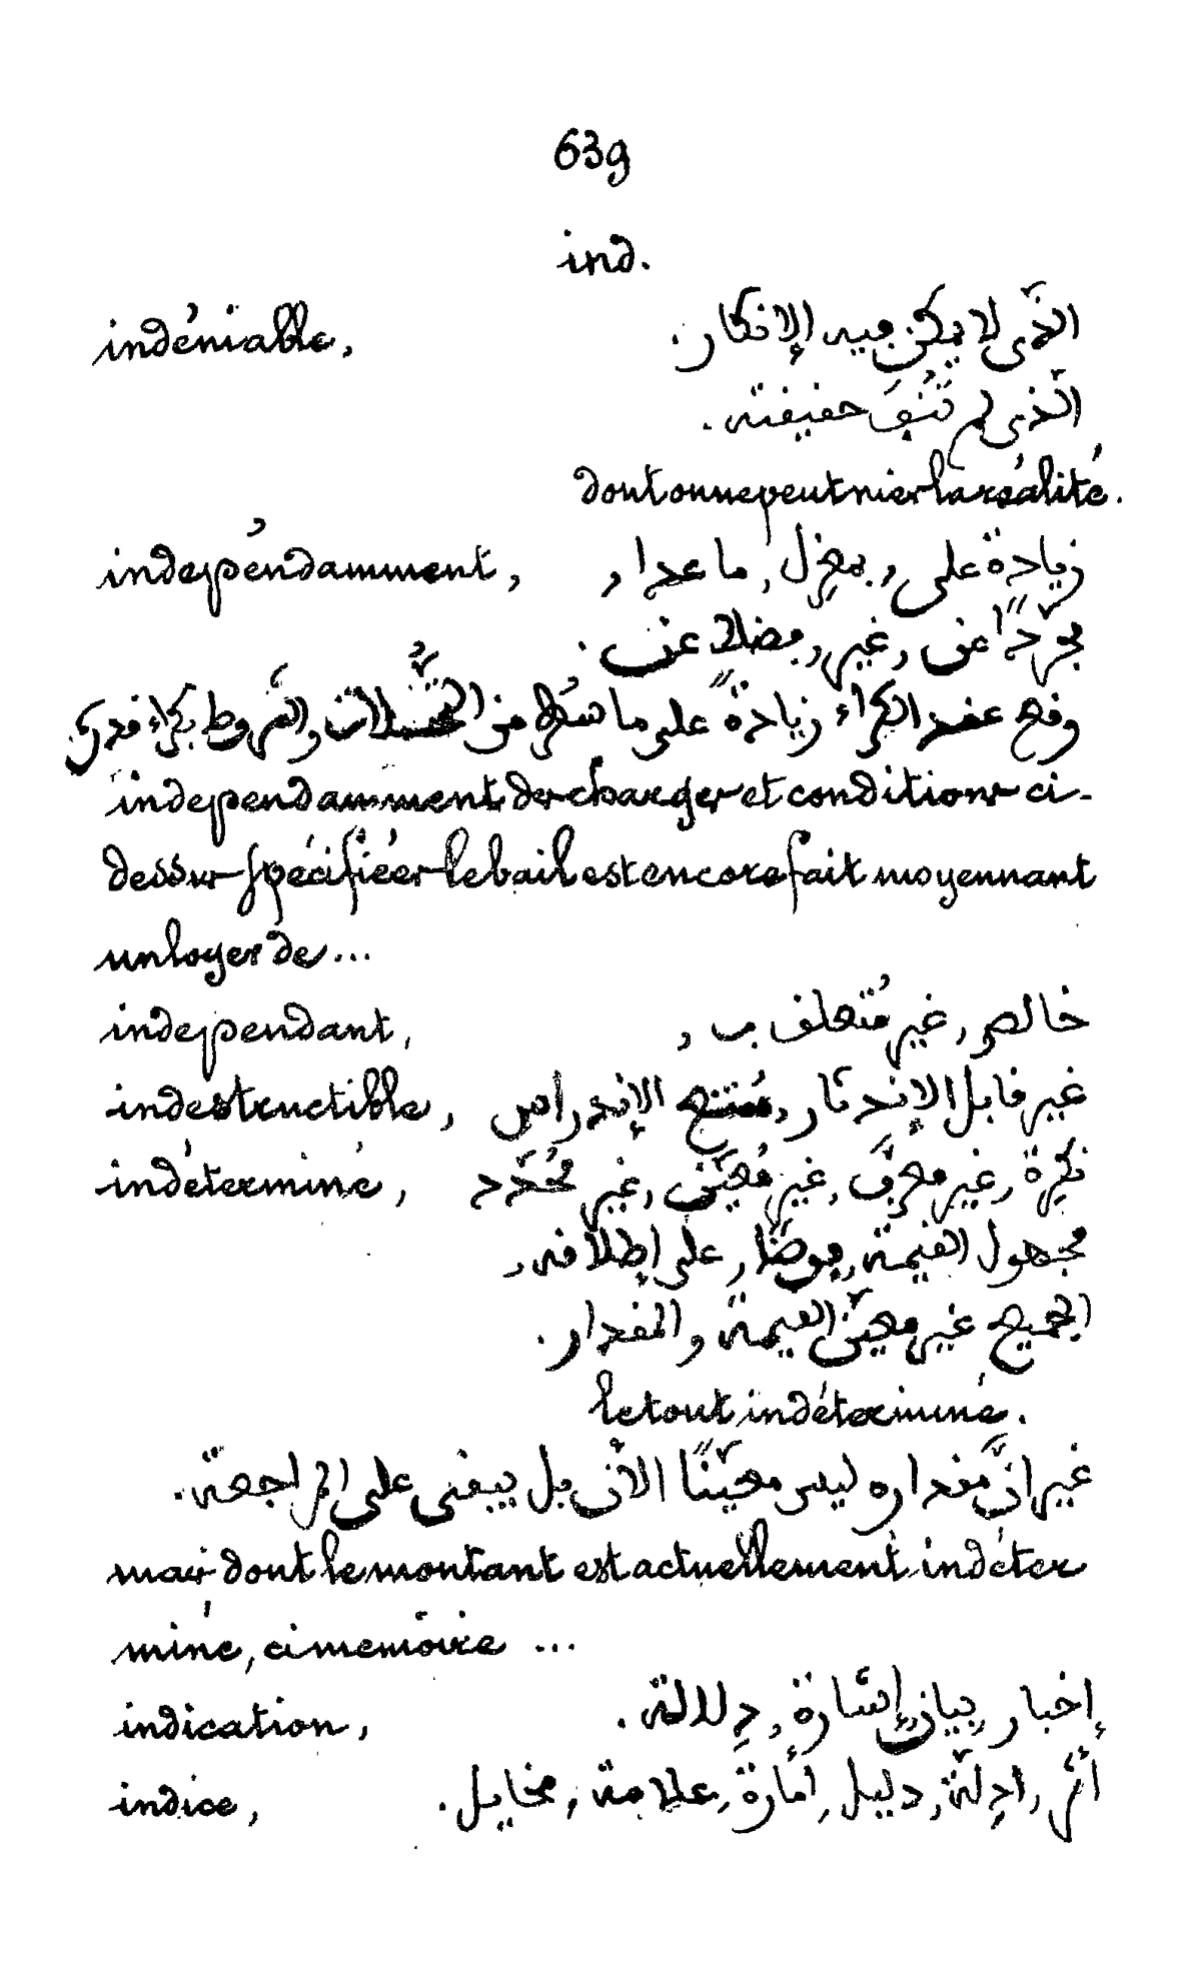 639
ind.
indéniable, الذّى لا يمكن فيه الإنكار.
الّذى لم تُنْفَ حقيقته.
dont on ne peut nier la réalité.
indépéndamment, زيادة على, بمعزل, ما عدا,
مجرّدًا عن, غير, فضلا عن.
وقع عقد الكراء زيادةً على ما سُطّر من والشّروط بكراء قدرى
independamment des charges et conditions ci-
dessus spécifiées le bail est encore fait moyennant
un loyer de ...
independant, خالص, غير مُتعلق ب,
indestructible, غير قابل الإندثار, الإندراس
indéterminé, نكِرة, غير معرّف, غير مُعيّن, غير مُحدّد
مجهول القيمة, فوضًا, على إطلاقه,
الجميع غير معيّن القيمة والمقدار.
le tout indéterminé.
غير انّ مقداره ليس معيّنًا الآن بل يبقى على المراجعة.
mais dont le montant est actuellement indéter
miné, ci memoire ...
indication, إخبار, بيان, إشارة, دِلالة.
indice, أثر, ادِلّة, دليل, أمارة, علامة, مخايل.